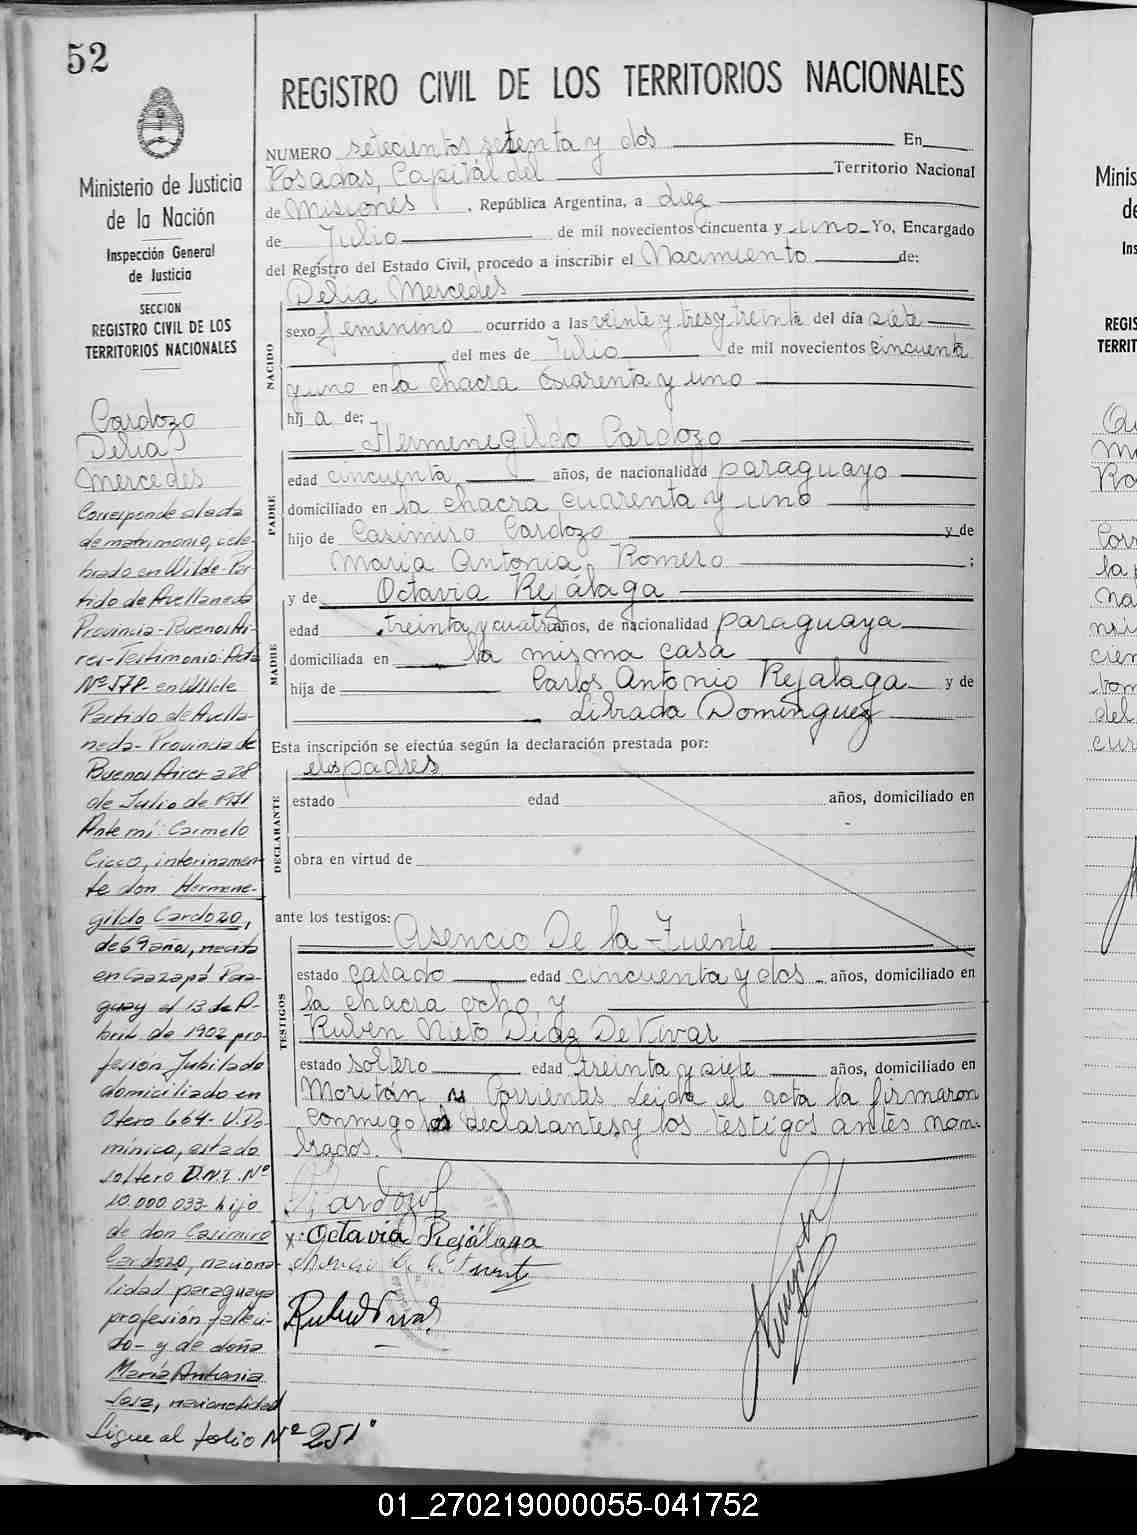 52
Ministerio de Justicia
de la Nación
Inspección General
de Justicia
SECCION
REGISTRO CIVIL DE LOS
TERRITORIOS NACIONALES
Cardozo
Delia
Mercedes
Corresponde al acta
de matrimonio, cele-
brado en Wilde-Par-
tido de Avellaneda
Provincia-Buenos Ai-
res-Testimonio: Acta
Nº 578- en Wilde
Partido de Avella-
neda-Provincia de
Buenos Aires a 28
de Julio de 1971
Ante mí: Carmelo
Cicco, interinamen-
te don Hermene-
gildo Cardozo,
de 69 años, nacido
en Caazapá Para-
guay el 13 de A-
bril de 1902 pro-
fesión Jubilado
domiciliado en
Otero 664- V. Do-
mínico, estado
soltero D.N.I. Nº
10.000.033- hijo
de don Casimiro
Cardozo, naciona-
lidad paraguaya
profesión falleci-
do- y de doña
María Antonia
Sosa, nacionalidad
Sigue al folio Nº 251
REGISTRO CIVIL DE LOS TERRITORIOS NACIONALES
NUMERO setecientos setenta y dos En
Posadas, Capital del Territorio Nacional
de Misiones, República Argentina, a diez
de Julio de mil novecientos cincuenta y uno Yo, Encargado
del Registro del Estado Civil, procedo a inscribir el Nacimiento de:
Delia Mercedes
NACIDO
sexo femenino ocurrido a las veinte y tres y treinta del día siete
del mes de Julio de mil novecientos cincuenta
y uno en la chacra cuarenta y uno
hij a de:
Hermenegildo Cardozo
PADRE
edad cincuenta años, de nacionalidad paraguayo
domiciliado en la chacra cuarenta y uno
hijo de Casimiro Cardozo y de
María Antonia Romero ;
y de Octavia Rejálaga
MADRE
edad treinta y cuatro años, de nacionalidad paraguaya
domiciliada en la misma casa
hija de Carlos Antonio Rejalaga y de
Librada Dominguez
Esta inscripción se efectúa según la declaración prestada por:
los padres
DECLARANTE
estado edad años, domiciliado en
obra en virtud de
ante los testigos: Asencio De la Fuente
TESTIGOS
estado casado edad cincuenta y dos años, domiciliado en
la chacra ocho y
Ruben Nieto Diaz De Vivar
estado soltero edad treinta y siete años, domiciliado en
Moritán y Corrientes Leída el acta la firmaron
conmigo los declarantes y los testigos antes nom-
brados.
x: Octavia Rejálaga
01_270219000055-041752